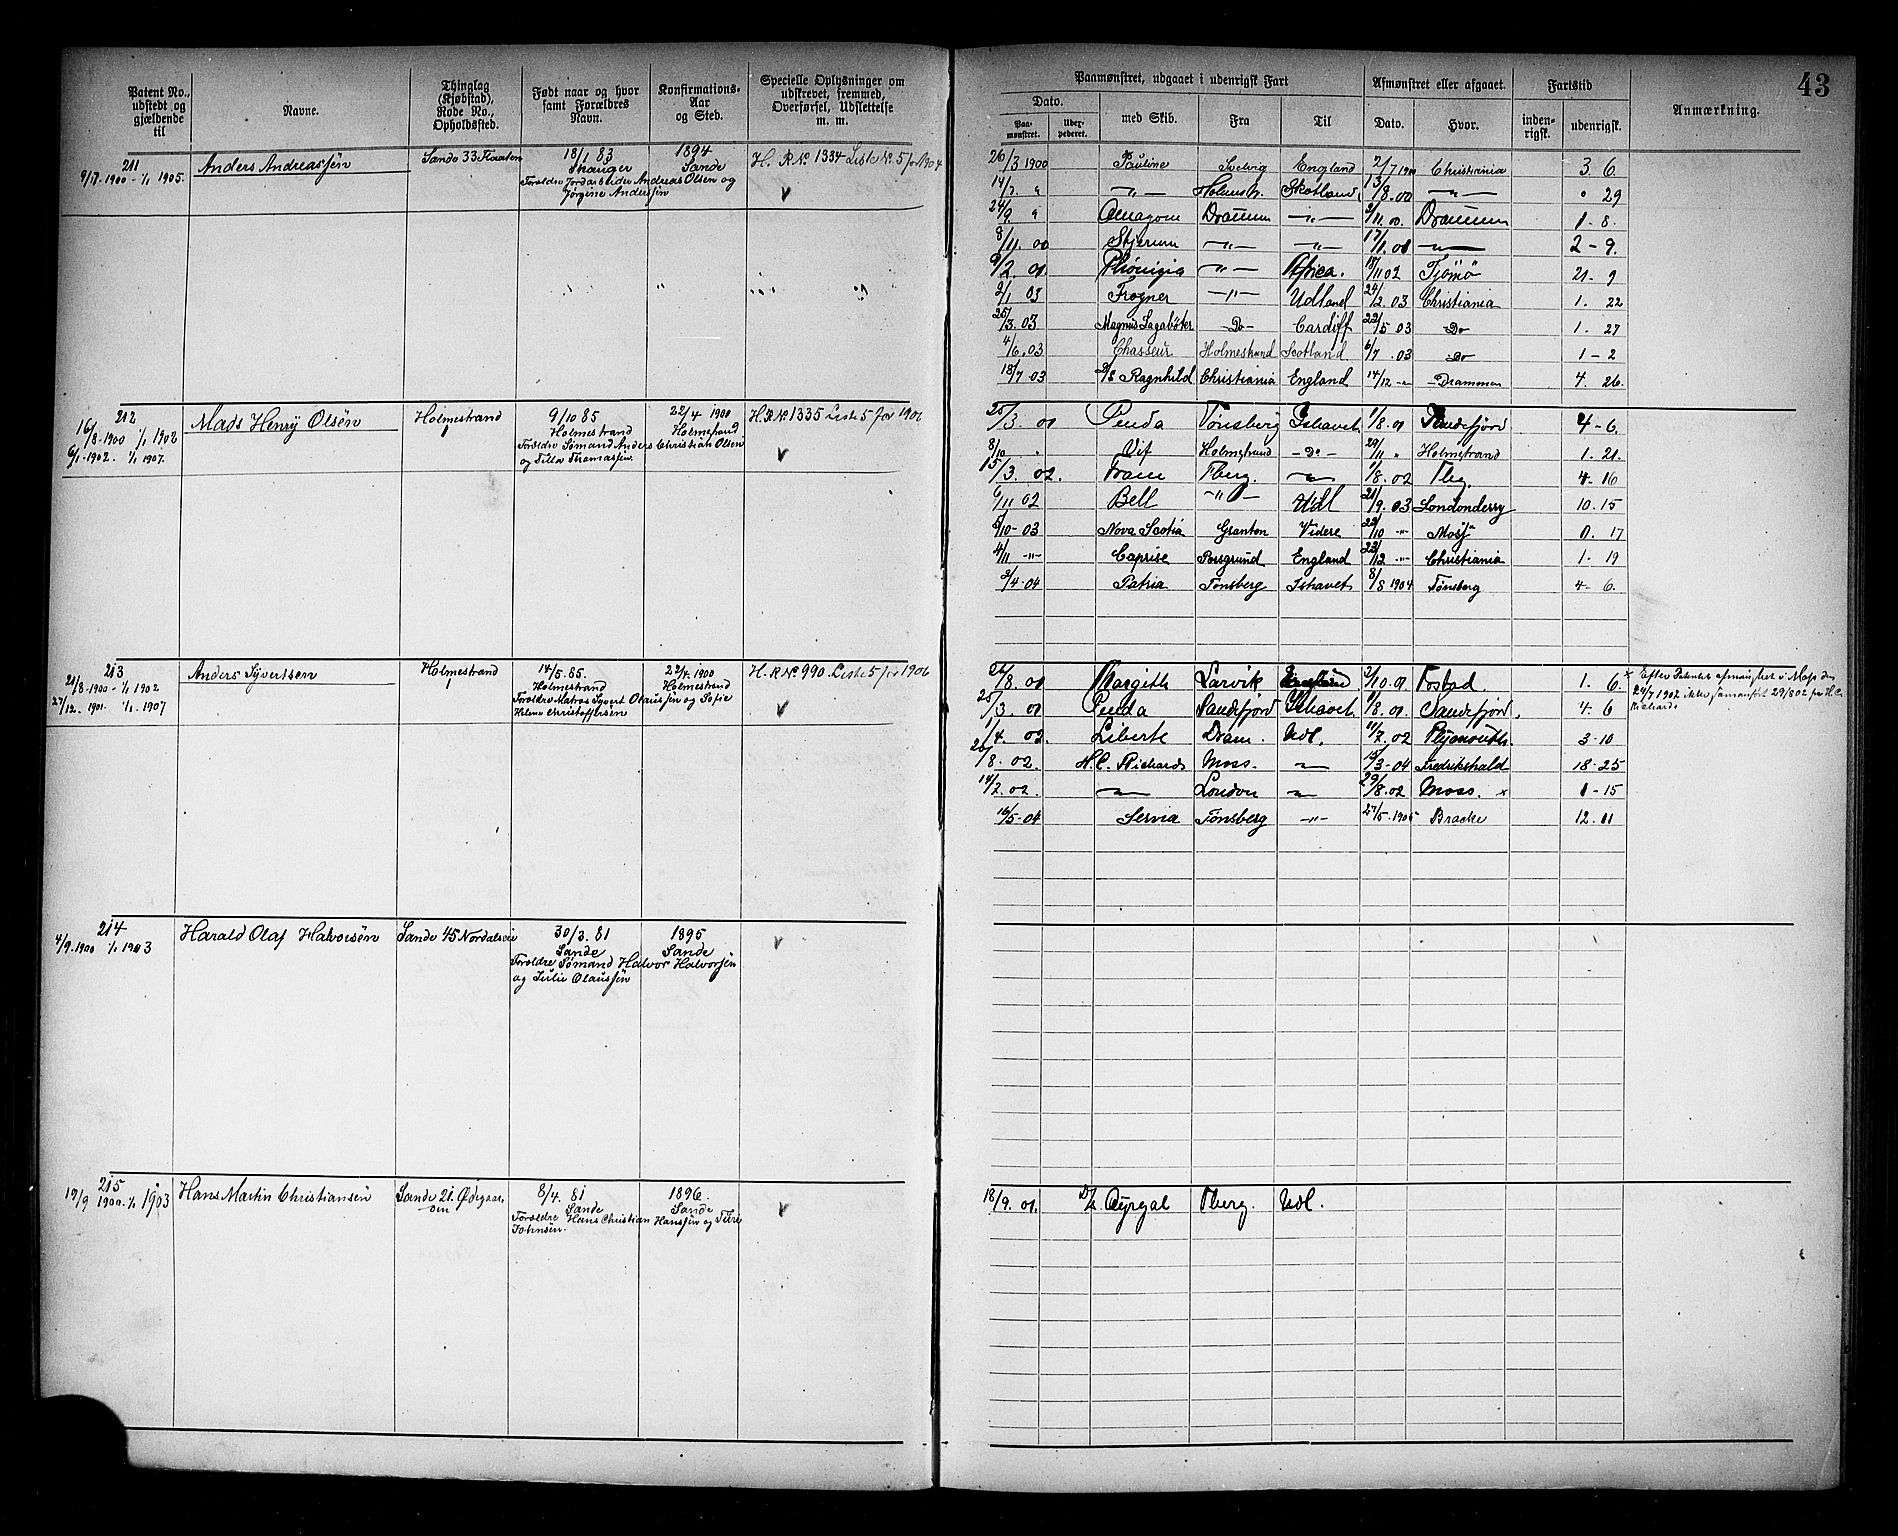 43
Patent No., udstedt og gjældende til
Navne.
Thinglag (Kjøbstad), Rode No., Opholdsfted.
Født naar og hvor samt Forældres Navn.
Konfirmations-Aar og Sted.
Specielle Oplysninger om udskrevet, fremmed, Overførsel, Udslettelse m. m.
Paamønstret, udgaaet i udenrigsk Fart
Afmønstret eller afgaaet.
Fartstid
Anmærkning.
Dato.
Paa-mønstret.
med Skib.
Fra
Til
Dato.
Hvor.
inden-rigsk.
udenrigsk.
211
1900 - 1/1 1905.
Anders Andreassen
Sande 33
18/1 83
Forældre Jordarbeider Andreas Olsen og
Jørgine Andersen
1894
Sande
H. R No 1334 Liste No. 5 for 1904
26/3 1900 Pauline Svelvig England 2/7 1900 Christiania 3 6.
14/7 " —"— Holmestr. Skotland /8.00 —"— " 29
24/9 " Dramm —"— 2/11.00. Drammen 1-8.
8/11 00 —"— —"— 17/1.01 —"— 2-9.
9/2 01 —"— Africa. 18/11 02 Tjømø 21-9
2/1 03 Frogner —"— Udland 24/2.03 Christiania 1. 22
25/3.03 Magnus Lagabøter -Do- Cardiff 22/5 03 Do 1. 27
4/6.03 Chasseur Holmestrand Scotland 6/7 .03 Do 1-2
18/7 03 D/S Ragnhild Christiania England 14/12 -"- Drammen 4. 26.
212
16/8.1900 1/1 1902
6/1.1902. 1/1 1907.
Mads Henry Olsen
Holmestrand
9/10 85
Holmestrand
Forældre Sømand Anders Christian Olsen
og Thomassen.
22/4 1900
Holmestrand
H.R No 1335 Liste 5 for 1906
25/3. 01 Penda Tønsberg Ishavet 1/8.01 Sandefjord 4-6.
8/10 " Vif Holmestrand -Do- 29/11 " Holmestrand 1. 21.
15/3. 02. Fram Tberg. —"— 1/8.02 Tbg. 4-16
6/11 02 Bell —"— Udl 21/9.03 Londonderry 10.15
5/10-03 Nova Scotia Granton Videre 22/10 -"- Moss 0. 17
4/11 -"- Caprise Porsgrund England 23/12 -"- Christiania 1- 19
2/4-04 Patria Tønsberg Ishavet 8/8 1904 Tønsberg 4- 6.
213
21/8.1900 - 1/1 1902
27/12.1901. 1/1 1907
Anders Syvertsen
Holmestrand
14/5.85.
Holmestrand
Forældre Matros Syvert Olaussen og Sofie
Helene Christoffersen
22/4 1900
Holmestrand
H.R No. 990 Liste 5 for 1906
26/8. 01 Margith Larvik 3/10.01 1. 6.
25/3. 01 Penda Sandefjord Ishavet 1/8.01. Sandefjord. 4. 6
1/4. 02. Liberte Dram. Udl. 11/7.02 Plymouth. 3-10
20/8.02. H.C. Richards Moss. —"— 12/3-04 Fredrikshald 18-25
14/2.02. —"— London —"— 29/8.02 Moss. x 1-15
16/5-04 Servia Tønsberg —"— 27/5.1905 Bracke 12.11
x Efter Patentet afmønstret i Moss den
24/7 1902 ikke 29/8 02 fra H.C.
Richards
214
4/9.1900 1/1 1903
Harald Olaf Halvorsen
Sande 45
30/3. 81
Sande
Forældre Sømand Halvor Halvorsen
og Julie Olaussen
1895
Sande
215
17/9 1900. 1/1 1903
Hans Martin Christiansen
Sande 21. Ødegaarden
8/4. 81
Sande
Forældre Hans Christian Hanssen og
Johnsen.
1896.
Sande
18/9. 01. D/S. Tberg. Udl.